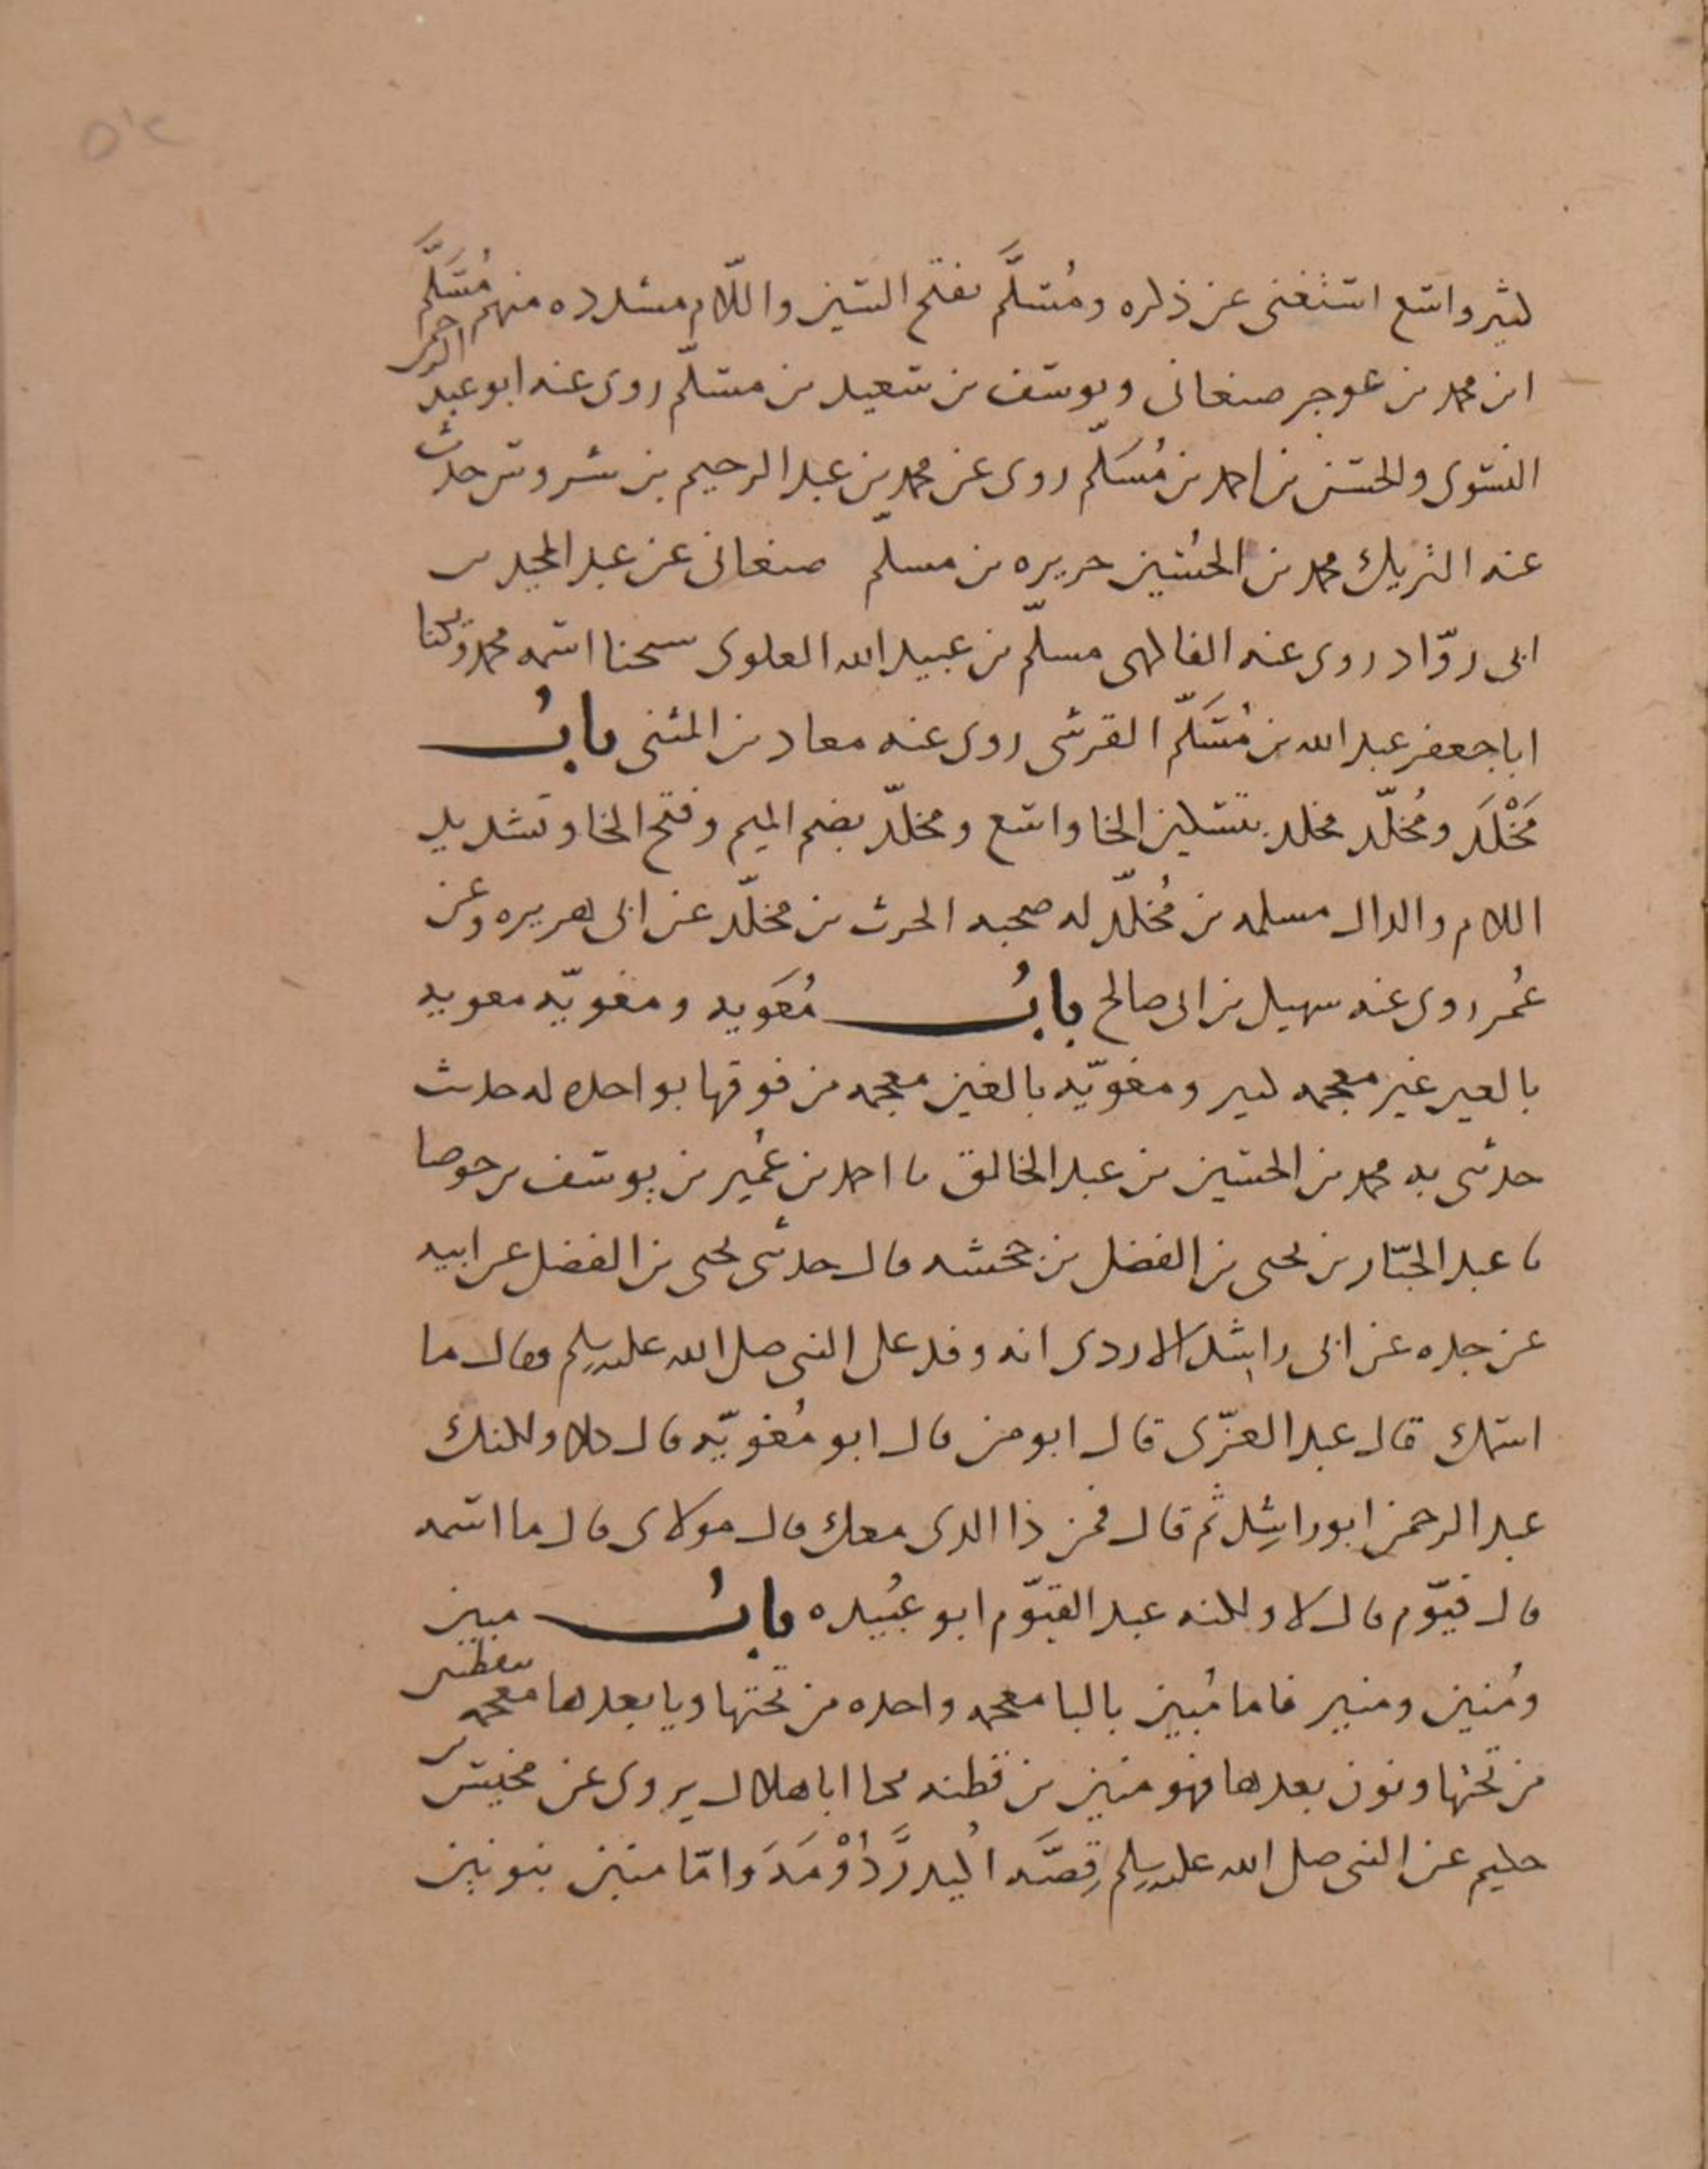 كثير واسع استغنى عن ذكره ومُسَلَّم بفتح السين واللّام مشدده منهم مُسَلَّم
ابن محمد بن عوجر صنعانى ويوسف بن سعيد بن مسلّم روى عنه ابو عبد الرحمن
النسوى والحسن بن احمد بن مُسَلّم روى عن محمد بن عبد الرحيم بن شروس حدث
عنه الشريك محمد بن الحسين حريره بن مسلّم صنعانى عن عبد المجيد بن
ابى روّاد روى عنه الفاكهى مسلّم بن عبيد الله العلوى شيخنا اسمه محمد وكنا
ابا جعفر عبد الله بن مُسَلّم القرشى روى عنه معاد بن المثنى بابُ
مَخْلَد ومُخلّد مخلد بتسكين الخا واسع ومخلّد بضم الميم وفتح الخا وتشديد
اللام والدال مسلمه بن مُخلّد له صحبه الحرث بن مخلّد عن ابى هريره وعن
عُمر روى عنه سهيل بن ابى صالح بابُ مُعَويه ومغويّه معويه
بالعين غير معجمه كثير ومغويّه بالغين معجمه من فوقها بواحده له حديث
حدثنى به محمد بن الحسين بن عبد الخالق نا احمد بن عُمير بن يوسف بن حوصا
نا عبد الجبّار بن يحيى بن الفضل بن جحشه قال حدثنى يحيى بن الفضل عن ابيه
عن جده عن ابى راشد الازدى انه وفد على النبى صلى الله عليه وسلم فقال ما
اسمك قال عبد العزّى قال ابو من قال ابو مُغويّه قال كلا ولكنك
عبد الرحمن ابو راشِد ثم قال فمن ذا الدى معك قال مولاى قال ما اسمه
قال قيّوم قال لا ولكنه عبد القيّوم ابو عُبيده بابُ مبين
ومُنين ومنير فاما مُبين بالبا معجمه واحده من تحتها ويا بعدها معجمه بنقطتين
من تحتها ونون بعدها فهو مبين بن قطنه يكنا ابا هلال يروى عن مخيس بن
حكيم عن النبى صلى الله عليه وسلم قِصَّه اكيدر دُوْمَه واما منين بنونين